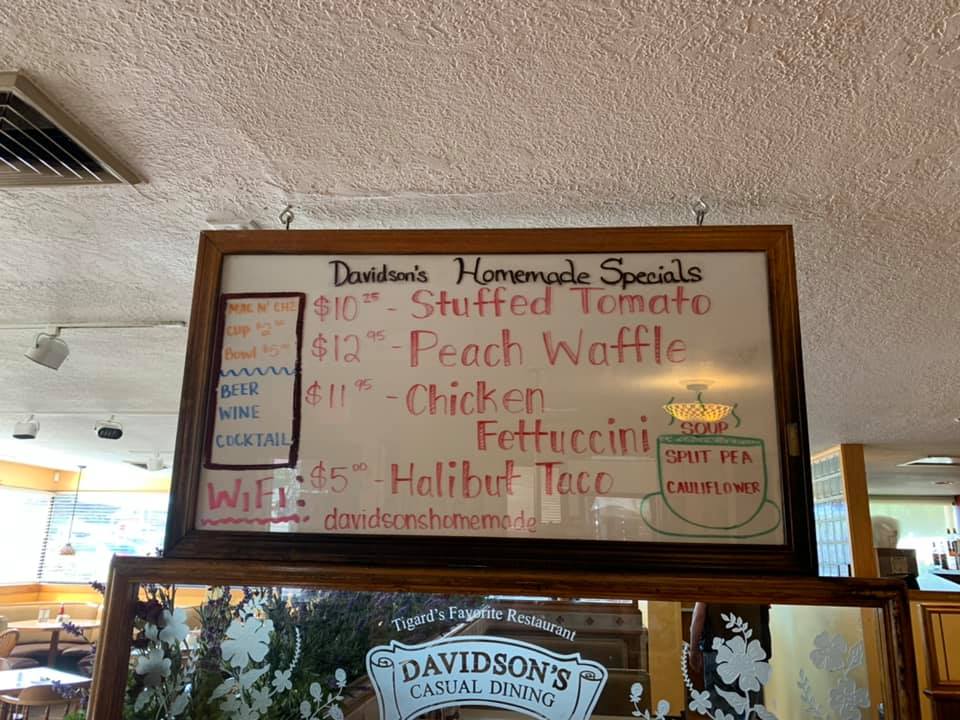 Davidson's Homemade Specials
MAC N' CHZ
CUP $2
Bowl $5
BEER
WINE
COCKTAIL
$10 25 - Stuffed Tomato
$12 95 - Peach Waffle
$11 95 - Chicken
Fettuccini
$5 00 - Halibut Taco
WIFI: davidsonshomemade
SOUP
SPLIT PEA
CAULIFLOWER
Tigard's Favorite Restaurant
DAVIDSON'S
CASUAL DINING